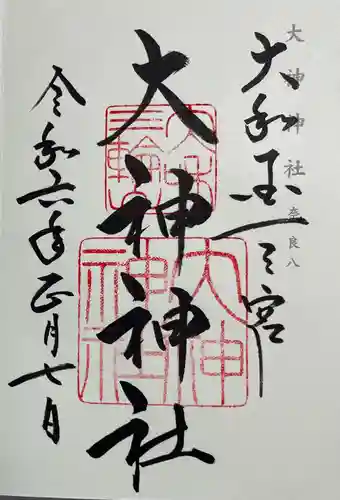 大神神社 奈良八
大和国一之宮
大神神社
令和六年正月七日
大和
三輪
大神
神社